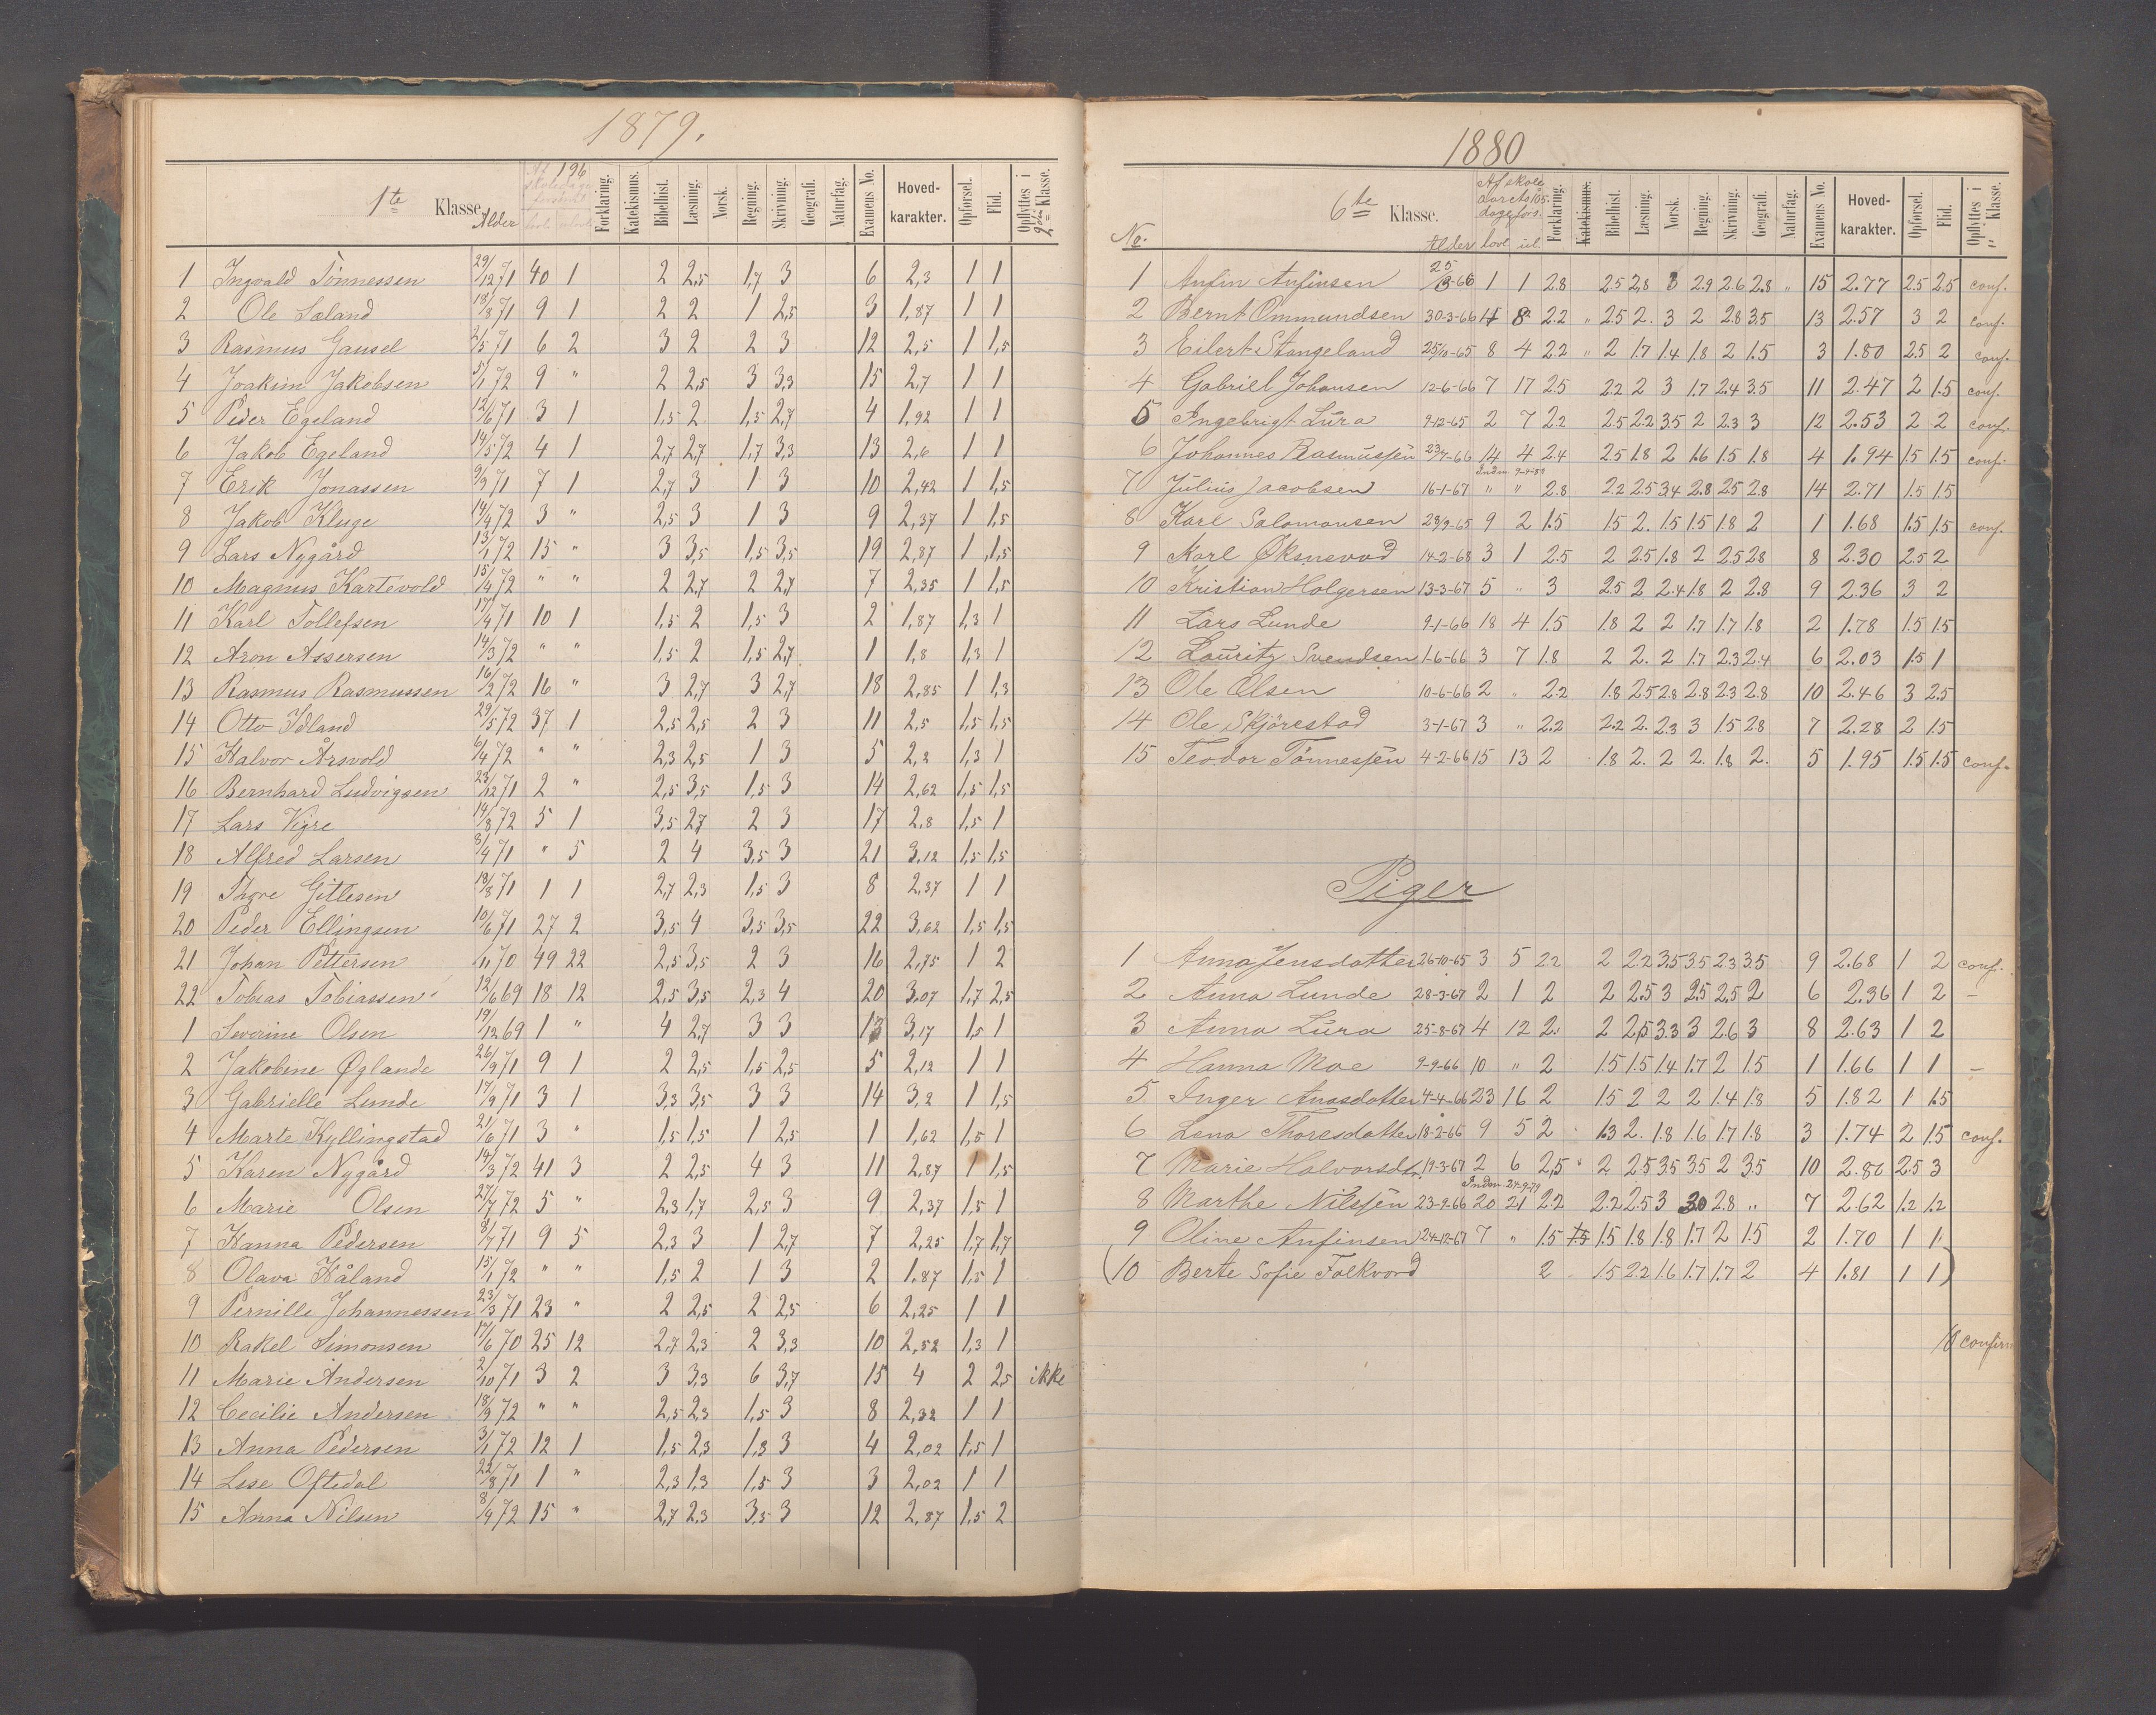 1879.
1te Klasse. Alder Af 196 Forklaring. Katekismus. Bibelhist. Læsning. Norsk. Regning. Skrivning. Geografi. Naturfag. Examens No. Hoved-karakter. Opførsel. Flid. Opflyttes i 2den Klasse.
1 Ingvald Tønnessen 29/12 71 40 1 2 2,5 1,7 3 6 2,3 1 1
2 Ole Søland 18/8 71 9 1 2 2 1 2,5 3 1,87 1 1
3 Rasmus Gausel 2/5 71 6 2 3 2 2 3 12 2,5 1 1,5
4 Joakim Jakobsen 31/1 72 9 " 2 2,5 3 3,3 15 2,7 1 1
5 Peder Egeland 12/6 71 3 1 1,5 2 1,5 2,7 4 1,92 1 1
6 Jakob Egeland 14/5 72 4 1 2,7 2,7 1,7 3,3 13 2,6 1 1
7 Erik Jonassen 9/9 71 7 1 2,7 3 1 3 10 2,42 1 1,5
8 Jakob Kluge 14/4 72 3 " 2,5 3 1 3 9 2,37 1 1,5
9 Lars Nygård 13/1 72 15 " 3 3,5 1,5 3,5 19 2,87 1 1,5
10 Magnus Kartevold 15/4 72 " " 2 2,7 2 2,7 7 2,35 1 1,5
11 Karl Tollefsen 17/9 71 10 1 1,5 2 1,5 3 2 1,87 1,3 1
12 Aron Assersen 14/3 72 " " 1,5 2 1,5 2,7 1 1,8 1,3 1
13 Rasmus Rasmussen 16/2 72 16 " 3 2,7 3 2,7 18 2,85 1 1,3
14 Otto Idland 29/5 72 37 1 2,5 2,5 2 3 11 2,5 1,5 1,5
15 Halvor Årsvold 6/4 72 " " 2,3 2,5 1 3 5 2,2 1,3 1
16 Bernhard Ludvigsen 23/12 71 2 " 2,5 3,5 1,5 3 14 2,62 1,5 1,5
17 Lars Vigre 14/8 72 5 1 3,5 2,7 2 3 17 2,8 1,5 1
18 Alfred Larsen 8/9 71 " 5 2 4 3,5 3 21 3,12 1,5 1,5
19 Thore Gitlesen 18/8 71 1 1 2,7 2,3 1,5 3 8 2,37 1 1
20 Peder Ellingsen 10/6 71 27 2 3,5 4 3,5 3,5 22 3,62 1,5 1,5
21 Johan Pettersen 70 49 22 2,5 3,5 2 3 16 2,75 1 2
22 Tobias Tobiassen 12/6 69 18 12 2,5 3,5 2,3 4 20 3,07 1,7 2,5
1 Severine Olsen 19/12 69 1 " 4 2,7 3 3 13 3,17 1,5 1
2 Jakobine Øglande 26/9 71 9 1 2 2,5 1,5 2,5 5 2,12 1 1
3 Gabrielle Lunde 17/9 71 3 1 3,3 3,5 3 3 14 3,2 1 1,5
4 Marte Kyllingstad 21/6 71 3 " 1,5 1,5 1 2,5 1 1,62 1,5 1
5 Karen Nygård 14/3 72 41 3 2 2,5 4 3 11 2,87 1 1,5
6 Marie Olsen 27/7 72 5 " 2,3 1,7 2,5 3 9 2,37 1,5 1
7 Hanna Pedersen 8/7 71 9 5 2,3 3 1 2,7 7 2,25 1,7 1,7
8 Olava Håland 15/1 72 " " 1,5 2 1 3 2 1.87 1,5 1
9 Pernille Johannessen 23/3 71 23 " 2 2,5 2 2,5 6 2,25 1 1
10 Rakel Simonsen 17/6 70 25 12 2,7 2,3 2 3,3 10 2,52 1,3 1
11 Marie Andersen 2/10 71 3 2 3 3,3 6 3,7 15 4 2 2,5 ikke
12 Cecilie Andersen 18/9 72 " " 2,5 2,3 1,5 3 8 2,32 1 1
13 Anna Pedersen 3/1 72 12 1 1,5 2,3 1,3 3 4 2,02 1,5 1
14 Lise Oftedal 22/8 71 1 " 2,3 1,3 1,5 3 3 2,02 1 1
15 Anna Nilsen 8/4 72 15 " 2,7 2,3 3,5 3 12 2,87 1,5 2
1880
No. 6te Klasse. Alder Af skoleaarets 105 dage fors. lovl. ul. Forklaring. Katekismus. Bibelhist. Læsning. Norsk. Regning. Skrivning. Geografi. Naturfag. Examens No. Hoved-karakter. Opførsel. Flid. Opflyttes i " Klasse.
1 Anfin Anfinsen 25/3-66 1 1 2.8 2.5 2,8 3 2.9 2.6 2.8 " 15 2.77 2.5 2.5 conf.
2 Bernt Ommundsen 30-3-66 14 8 2.2 " 2.5 2. 3 2 2.8 3.5 13 2.57 3 2 conf.
3 Eilert Stangeland 25/10-65 8 4 2.2 " 2 1.7 1.4 1.8 2 1.5 3 1.80 2.5 2 conf.
4 Gabriel Johansen 12-6-66 7 17 2.5 2.2 2 3 1.7 2.4 3.5 11 2.47 2 1.5 conf.
5 Ingebrigt Lura 9-12-65 2 7 2.2 2.5 2.2 3.5 2 2.3 3 12 2.53 2 2 conf.
6 Johannes Rasmussen 23/7-66 14 4 2.4 2.5 1.8 2 1.6 1.5 1.8 4 1.94 1.5 1.5 conf.
7 Julius Jacobsen 16-1-67 Indm. 9-4-80 " " 2.8 2.2 2.5 3.4 2.8 2.5 2.8 14 2.71 1.5 1.5
8 Karl Salomonsen 28/9-65 9 2 1.5 1.5 2. 1.5 1.5 1.8 2 1 1.68 1.5 1.5 conf.
9 Karl Øksnevad 14-2-68 3 1 2.5 2 2.5 1.8 2 2.5 2.8 8 2.30 2.5 2
10 Kristian Holgersen 13-3-67 5 " 3 2.5 2 2.4 1.8 2 2.8 9 2.36 3 2
11 Lars Lunde 9-1-66 18 4 1.5 1.8 2 2 1.7 1.7 1.8 2 1.78 1.5 1.5
12 Lauritz Svendsen 1-6-66 3 7 1.8 2 2. 2 1.7 2.3 2.4 6 2.03 1.5 1
13 Ole Olsen 10-6-66 2 " 2.2 1.8 2.5 2.8 2.8 2.3 2.8 10 2.46 3 2.5
14 Ole Skjörestad 3-1-67 3 " 2.2 2.2 2. 2.3 3 1.5 2.8 7 2.28 2 1.5
15 Teodor Tönnessen 4-2-66 15 13 2 1.8 2. 2 2. 1.8 2. 5 1.95 1.5 1.5 conf.
Piger
1 Anna Jensdatter 26-10-65 3 5 2.2 2 2.2 3.5 3.5 2.3 3.5 9 2.68 1 2 conf.
2 Anna Lunde 28-3-67 2 1 2 2 2.5 3 2.5 2,5 2 6 2.36 1 2 -
3 Anna Lura 25-8-67 4 12 2. 2 2,5 3.3 3 2.6 3 8 2.63 1 2
4 Hanna Moe 9-9-66 10 " 2 1.5 1.5 1.4 1.7 2 1.5 1 1.66 1 1 -
5. Inger Aasdatter 4-4-66 23 16 2 1.5 2 2 2 1.4 1.8 5 1.82 1 1.5
6 Lena Thoresdatter 18-2-66 9 5 2 1.3 2. 1.8 1.6 1.7 1.8 3 1.74 2 1.5 conf.
7 Marie Halvorsdtr. 19-3-67 2 6 2,5 " 2 2.5 3.5 3.5 2 3.5 10 2.80 2.5 3
8 Marthe Nilssen 23-9-66 Indm. 24-9-79 20 21 2.2 2.2 2.5 3 3.0 2.8 " 7 2.62 1.2 1.2
9 Oline Anfinsen 24-12-67 7 " 1.5 1.5 1.5 1.8 1.8 1.7 2 1.5 2 1.70 1 1
(10 Berte Sofie Folkvord 2 1.5 2.2 1.6 1.7 1.7 2 4 1.81 1 1)
10 confirm